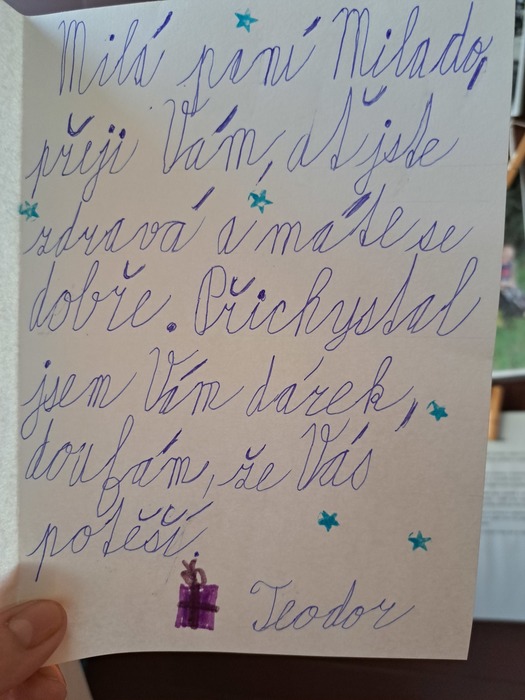 Milá paní Milado,
přeji Vám, ať jste
zdravá a máte se
dobře. Přichystal
jsem Vám dárek,
doufám, že Vás
potěší.
Teodor